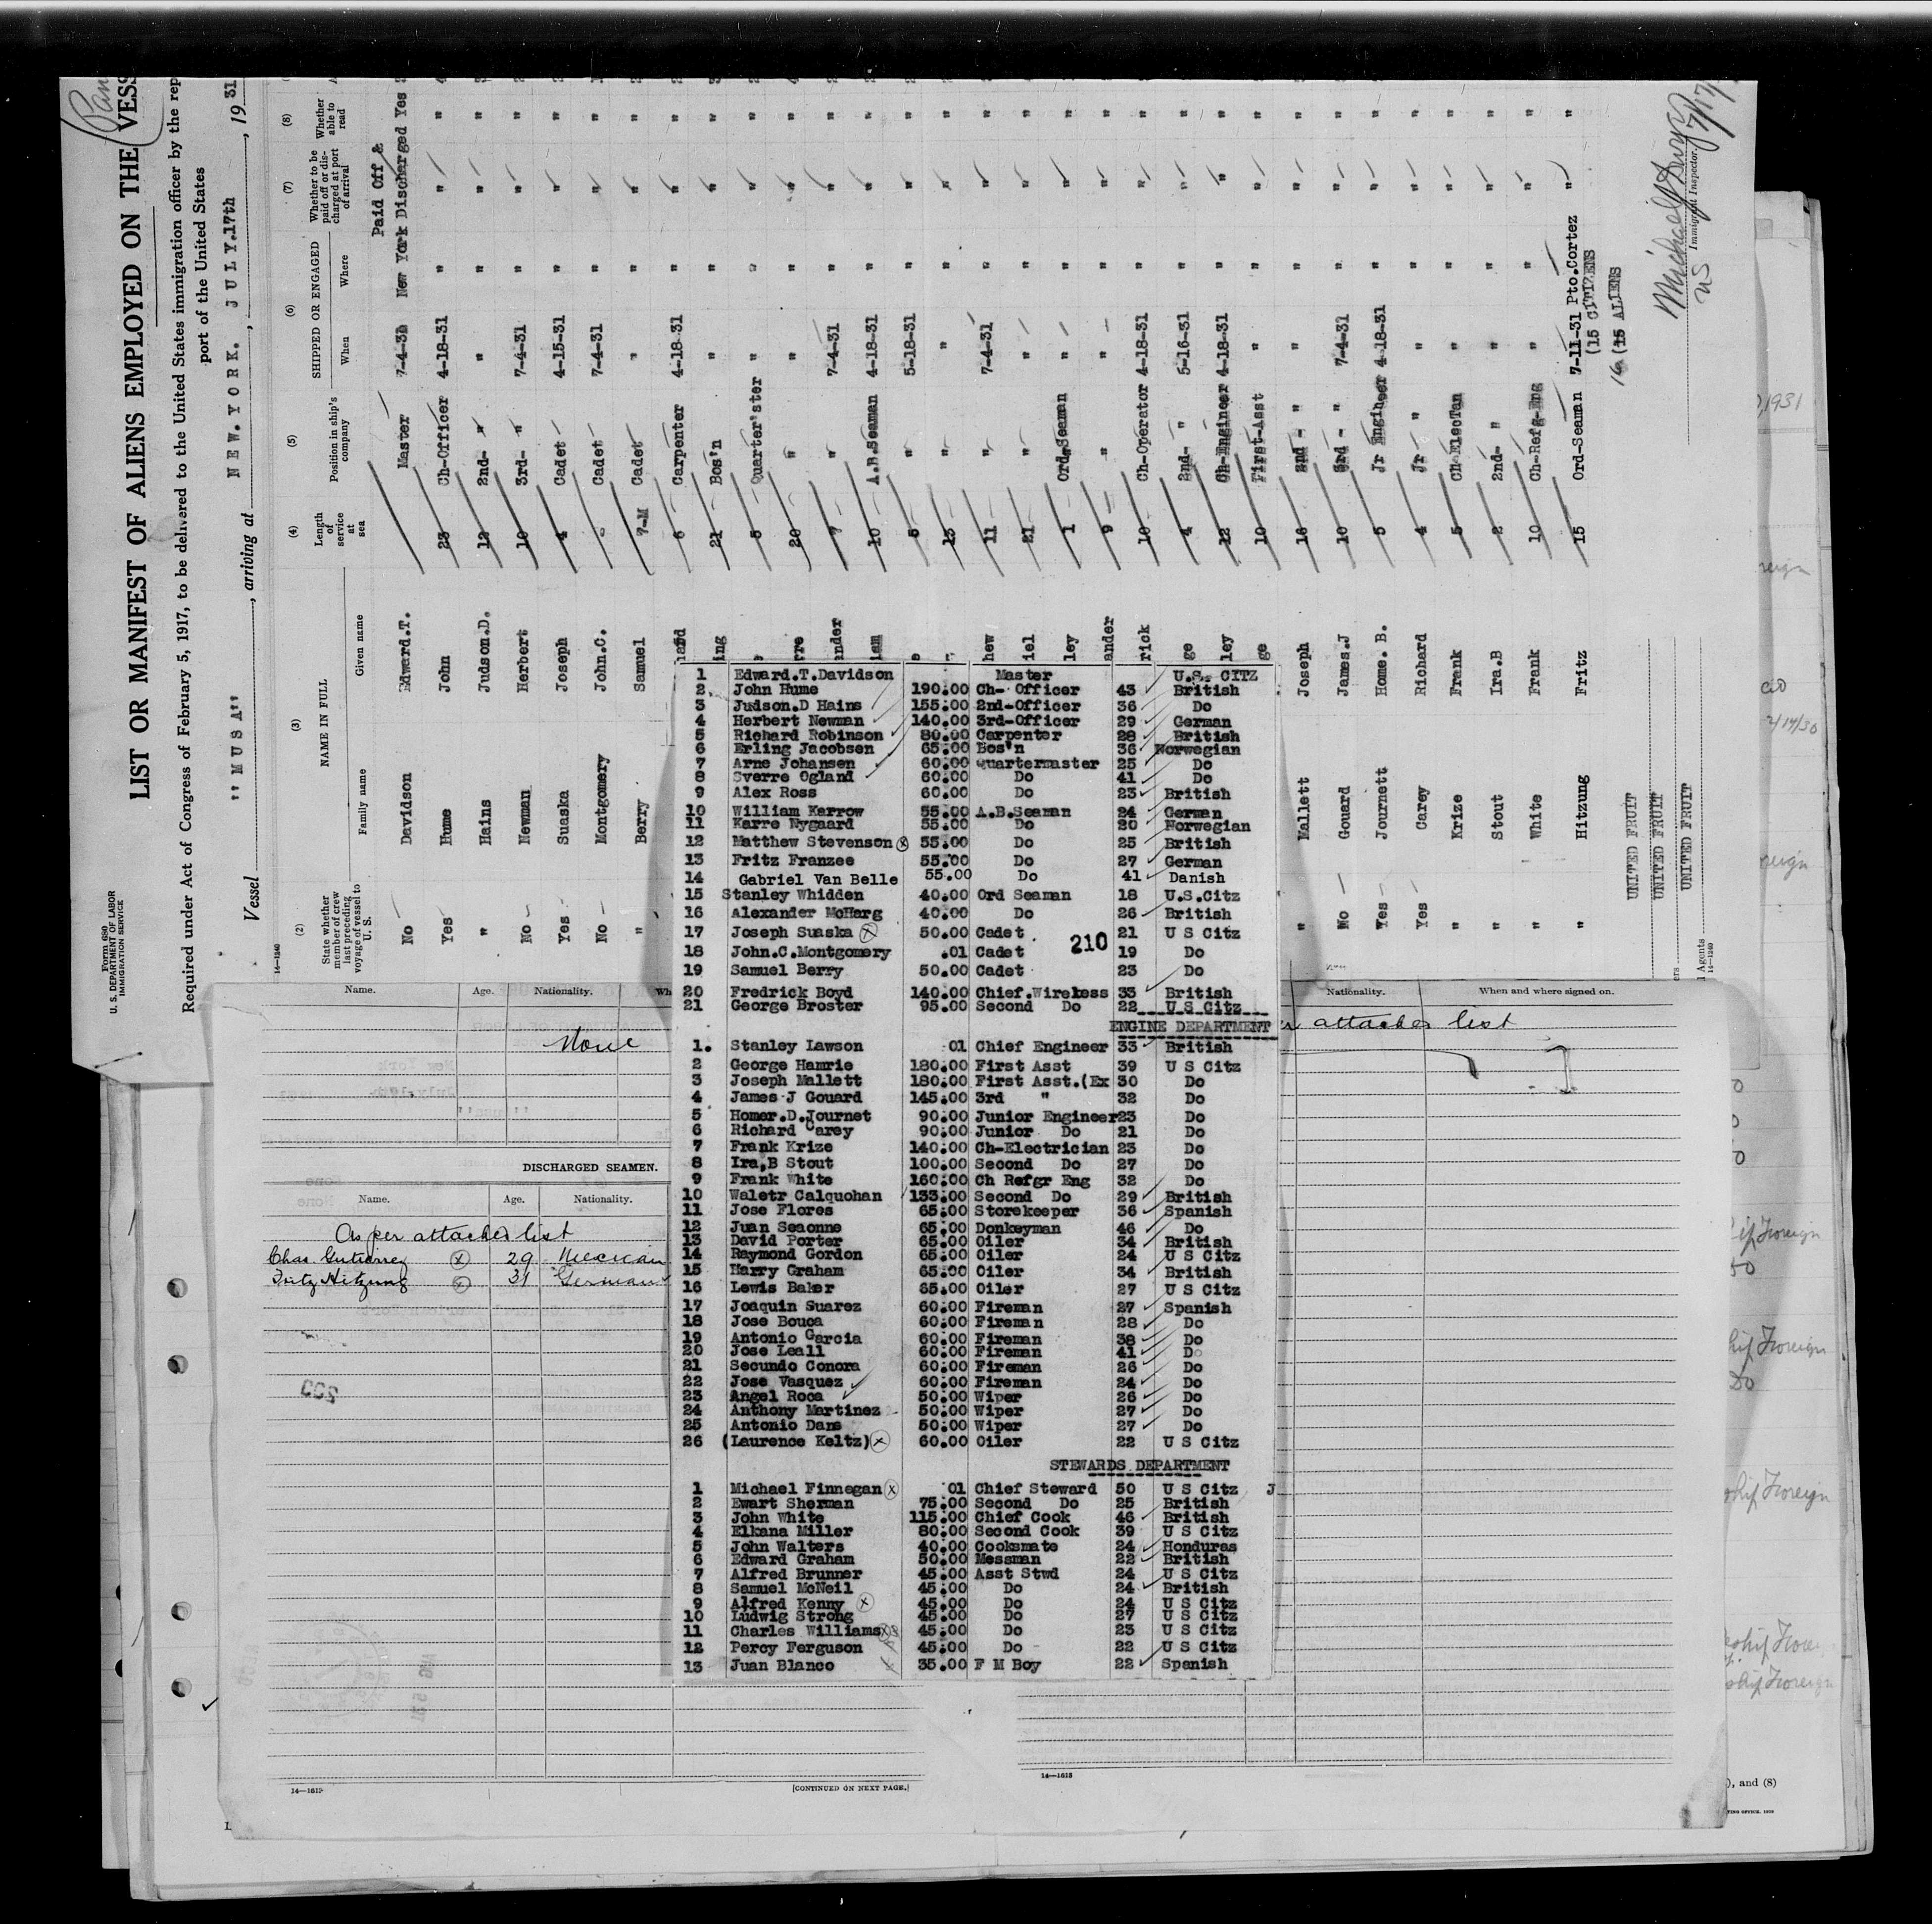 Form 680
U. S. DEPARTMENT OF LABOR
IMMIGRATION SERVICE
LIST OR MANIFEST OF ALIENS EMPLOYED ON THE VESS
Required under Act of Congress of February 5, 1917, to be delivered to the United States immigration officer by the rep
port of the United States
Vessel "MUSA" , arriving at NEW.YORK. JULY.17th , 19 31
14-1240
(2) (3) (4) (5) (6) (7) (8)
State whether member of crew last preceding voyage of vessel to U. S.
NAME IN FULL
Family name Given name
Length of service at sea
Position in ship's company
SHIPPED OR ENGAGED
When Where
Whether to be paid off or discharged at port of arrival
Whether able to read
Paid Off &
No Davidson Edward.T. Master 7-4-31 New York Discharged Yes
Yes Hume John 23 Ch-Officer 4-18-31 " " "
" Hains Judson.D. 12 2nd- " " " " "
No Newman Herbert 10 3rd- " 7-4-31 " " "
Yes Suaska Joseph 4 Cadet 4-15-31 " " "
No Montgomery John.C. - Cadet 7-4-31 " " "
" Berry Samuel 7-M Cadet " " " "
6 Carpenter 4-18-31 " " "
ing 21 Bos'n " " " "
5 Quarter'ster " " " "
rre 20 " " " " "
nder 7 " 7-4-31 " " "
iam 10 A.B.Seaman 4-18-31 " " "
5 " 5-18-31 " " "
13 " " " " "
hew 11 " 7-4-31 " " "
iel 21 " " " " "
ley 1 Ord.Seaman " " " "
ander 9 " " " " "
rick 10 Ch-Operator 4-18-31 " " "
ge 4 2nd- " 5-16-31 " " "
ley 12 Ch-Engineer 4-18-31 " " "
ge 10 First-Asst " " " "
" Mallett Joseph 16 2nd - " " " " "
No Gouard James.J 10 3rd - " 7-4-31 " " "
Yes Journett Home. B. 5 Jr Engineer 4-18-31 " " "
Yes Carey Richard 4 Jr " " " " "
" Krize Frank 5 Ch-ElecTan " " " "
" Stout Ira.B 2 2nd- " " " " "
" White Frank 10 Ch-Refg-Eng " " " "
" Hitzung Fritz 15 Ord-Seaman 7-11-31 Pto.Cortez " "
(15 CITIZENS
16 (15 ALIENS
UNITED FRUIT
UNITED FRUIT
UNITED FRUIT
Agents
14-1240
Immigrant Inspector.
7/17
1 Edward.T.Davidson Master U.S. CITZ
2. John Hume 190.00 Ch- Officer 43 British
3 Judson.D Hains 155.00 2nd-Officer 36 Do
4 Herbert Newman 140.00 3rd-Officer 29 German
5 Richard Robinson 80.00 Carpenter 28 British
6 Erling Jacobsen 65.00 Bos'n 36 Norwegian
7 Arne Johansen 60.00 Quartermaster 25 Do
8 Sverre Ogland 60.00 Do 41 Do
9 Alex Ross 60.00 Do 23 British
10 William Karrow 55.00 A.B.Seaman 24 German
11 Karre Nygaard 55.00 Do 20 Norwegian
12 Matthew Stevenson 55.00 Do 25 British
13 Fritz Franzee 55.00 Do 27 German
14 Gabriel Van Belle 55.00 Do 41 Danish
15 Stanley Whidden 40.00 Ord Seaman 18 U.S.Citz
16 Alexander McHarg 40.00 Do 26 British
17 Joseph Suaska 50.00 Cadet 21 U S Citz
210
18 John.C.Montgomery .01 Cadet 19 Do
19 Samuel Berry 50.00 Cadet 23 Do
20 Fredrick Boyd 140.00 Chief.Wireless 33 British
21 George Broster 95.00 Second Do 22 U S Citz
ENGINE DEPARTMENT
1. Stanley Lawson 01 Chief Engineer 33 British
2 George Hamrie 180.00 First Asst 39 U S Citz
3 Joseph Mallett 180.00 First Asst.(Ex 30 Do
4 James J Gouard 145.00 3rd " 32 Do
5 Homer.D.Journet 90.00 Junior Engineer 23 Do
6 Richard Carey 90.00 Junior Do 21 Do
7 Frank Krize 140.00 Ch-Electrician 23 Do
8 Ira,B Stout 100.00 Second Do 27 Do
9 Frank White 160.00 Ch Refgr Eng 32 Do
10 Waletr Calquohan 133.00 Second Do 29 British
11 Jose Flores 65.00 Storekeeper 36 Spanish
12 Juan Seaonne 65.00 Donkeyman 46 Do
13 David Porter 65.00 Oiler 34 British
14 Raymond Gordon 65.00 Oiler 24 U S Citz
15 Harry Graham 65.00 Oiler 34 British
16 Lewis Baker 65.00 Oiler 27 U S Citz
17 Joaquin Suarez 60.00 Fireman 27 Spanish
18 Jose Bouca 60.00 Fireman 28 Do
19 Antonio Garcia 60.00 Fireman 38 Do
20 Jose Leall 60.00 Fireman 41 Do
21 Secundo Conora 60.00 Fireman 26 Do
22 Jose Vasquez 60.00 Fireman 24 Do
23 Angel Roca 50.00 Wiper 26 Do
24 Anthony Martinez 50.00 Wiper 27 Do
25 Antonio Dans 50.00 Wiper 27 Do
26 (Laurence Keltz) 60.00 Oiler 22 U S Citz
STEWARDS DEPARTMENT
1 Michael Finnegan 01 Chief Steward 50 U S Citz J
2 Ewart Sherman 75.00 Second Do 25 British
3 John White 115.00 Chief Cook 46 British
4 Elkana Miller 80.00 Second Cook 39 U S Citz
5 John Walters 40.00 Cooksmate 24 Honduras
6 Edward Graham 50.00 Messman 22 British
7 Alfred Brunner 45.00 Asst Stwd 24 U S Citz
8 Samuel McNeil 45.00 Do 24 British
9 Alfred Kenny 45.00 Do 24 U S Citz
10 Ludwig Strong 45.00 Do 27 U S Citz
11 Charles Williams 45.00 Do 23 U S Citz
12 Percy Ferguson 45.00 Do 22 U S Citz
13 Juan Blanco 35.00 F M Boy 22 Spanish
Name. Age. Nationality. Wh
None
DISCHARGED SEAMEN.
Name. Age. Nationality.
As per attached list
Chas. Gutierrez 29 Mexican
Fritz Hitzung 31 German
14—1615
[CONTINUED ON NEXT PAGE.]
Nationality. When and where signed on.
attached list
14—1615
,1931
reign
2/14/30
reign
Foreign
hip Foreign
Do
ship Foreign
ship Foreign
), and (8)